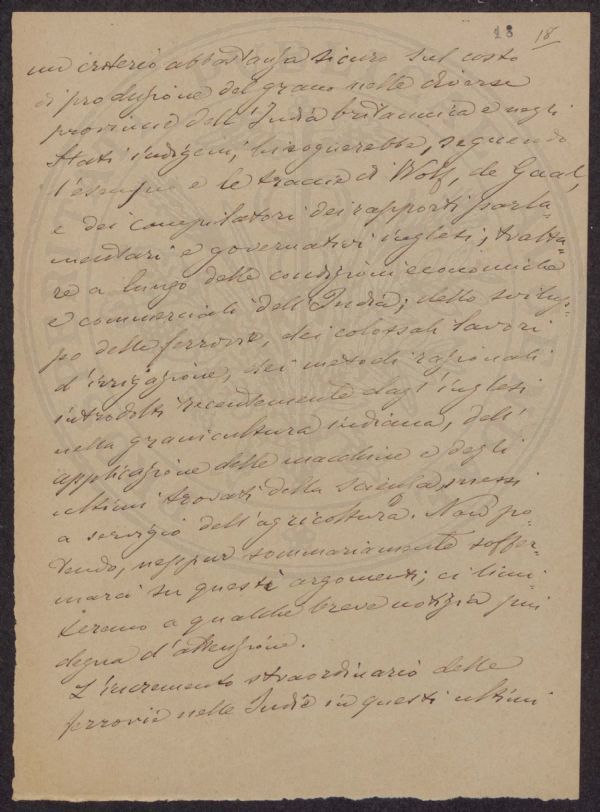 18 18
un criterio abbastanza sicuro sul costo
di produzione del grano nelle diverse
provincie dell'India britannica e negli
Stati indigeni, bisognerebbe, seguendo
l'esempio e le traccie di Wolf, de Gaal,
e dei compilatori dei rapporti parla-
mentari e governativi inglesi, tratta-
re a lungo delle condizioni economiche
e commerciali dell'India; dello svilup-
po delle ferrovie, dei colossali lavori
d'irrigazione, dei metodi razionali
introdotti recentemente dagl'inglesi
nella granicultura indiana, dell'
applicazione delle macchine e degli
ultimi trovati della scienza messi
a servizio dell'agricoltura. Non po-
tendo, neppur sommariamente soffer-
marci su questi argomenti, ci limi-
teremo a qualche breve notizia più
degna d'attenzione.
L'incremento straordinario delle
ferrovie nelle Indie in questi ultimi